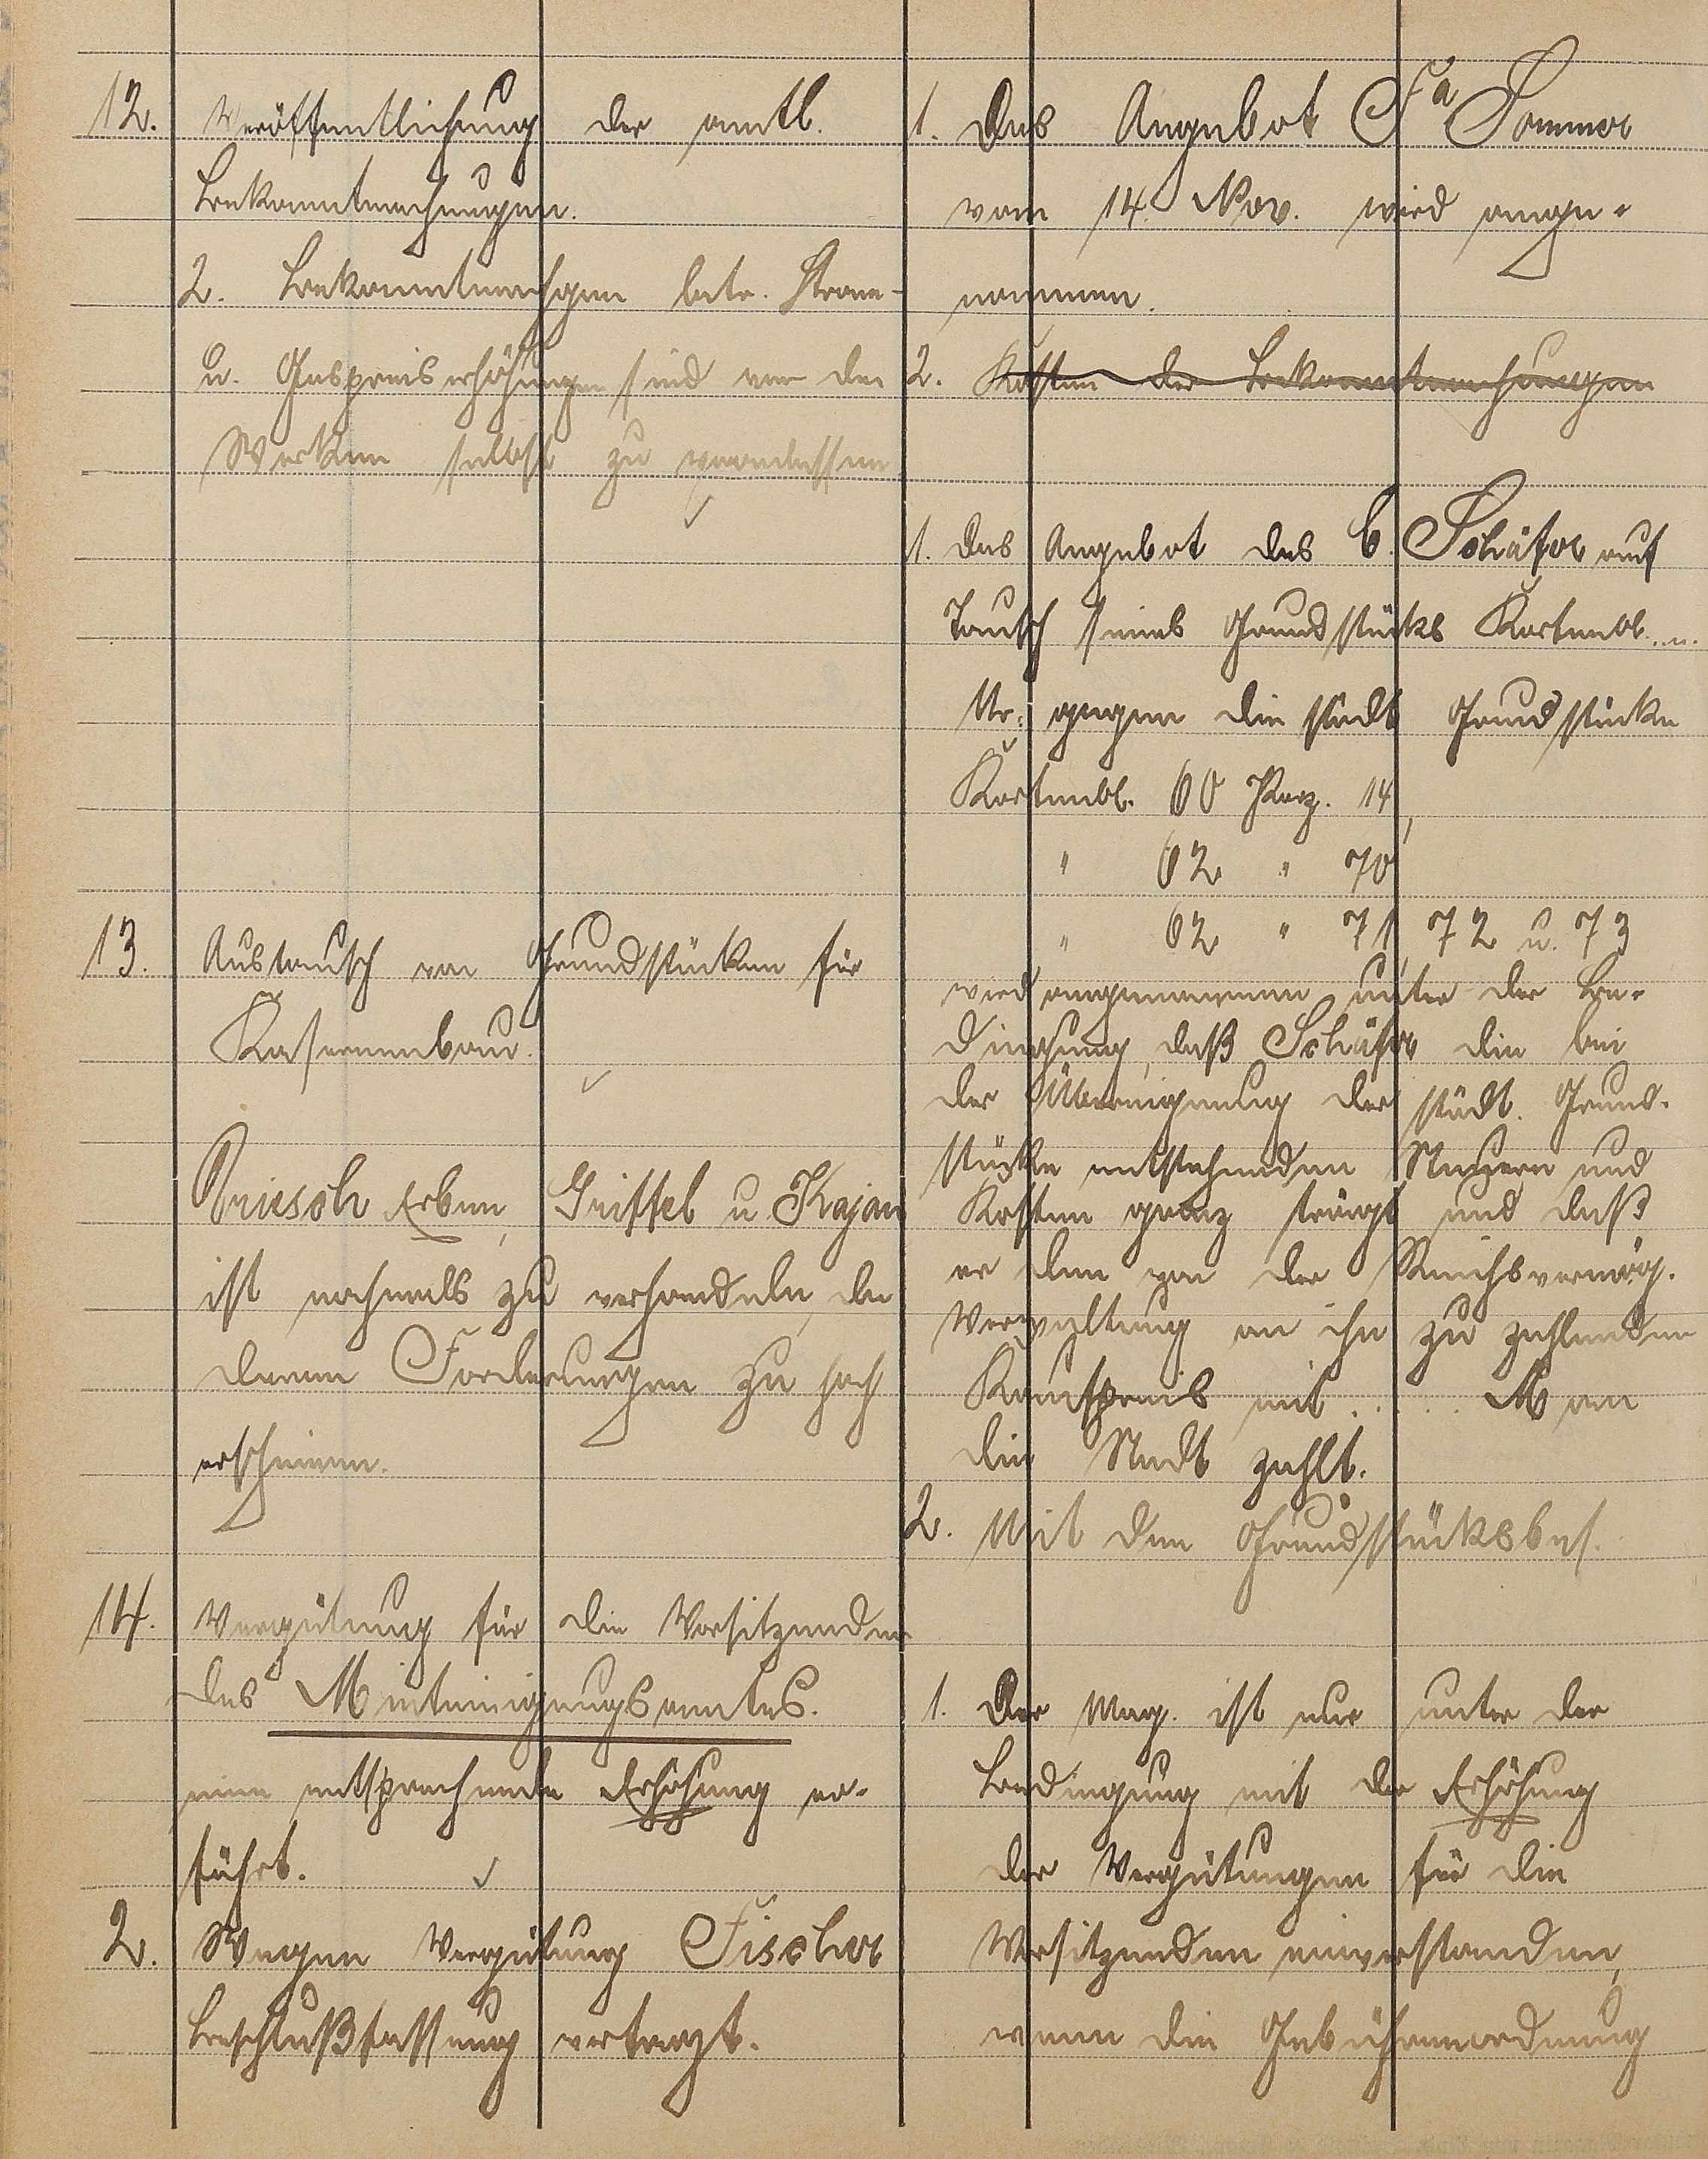 12. Veröffentlichung der amtl.
Bekanntmachungen.
2. Bekanntmachgen betr. Strom-
u. Gaspreiserhöhungen sind von den
Werken selbst zu veranlassen
1. Das Angebot Fa Sommer
vom 14. Nov. wird ange-
nommen.
2. Kosten der Bekanntmachungen
13. Austausch von Grundstücken für
Kasernenbau.
Driesch Erben, Greiffel u Kajan
ist nochmals zu verhandeln, da
deren Forderungen zu hoch
erscheinen.
1. Das Angebot des C. Schäfer auf
Tausch seines Grundstücks Kartenbl. ...
Nr. gegen die städt Grundstücke
Kartenbl. 60 Parz. 14,
" 62 " 70
" 62 " 71, 72 u. 73
wird angenommen unter der Be-
dingung, daß Schäfer die bei
der Übereignung der städt. Grund-
stücke entstehenden Steuern und
Kosten ganz trägt und daß
er den von der Reichsvermög.
Verwaltung an ihn zu zahlenden
Kaufpreis mit ..... M an
die Stadt zahlt.
2. Mit den Grundstücksbes.
14. Vergütung für die Vorsitzenden
des Mieteinigungsamtes.
eine entsprechende Erhöhung er-
fährt.
2. Wegen Vergütung Fischer
Beschlußfassung vertagt.
1. Der Mag. ist nur unter der
Bedingung mit der Erhöhung
der Vergütungen für die
Vorsitzenden einverstanden,
wenn die Gebührenordnung